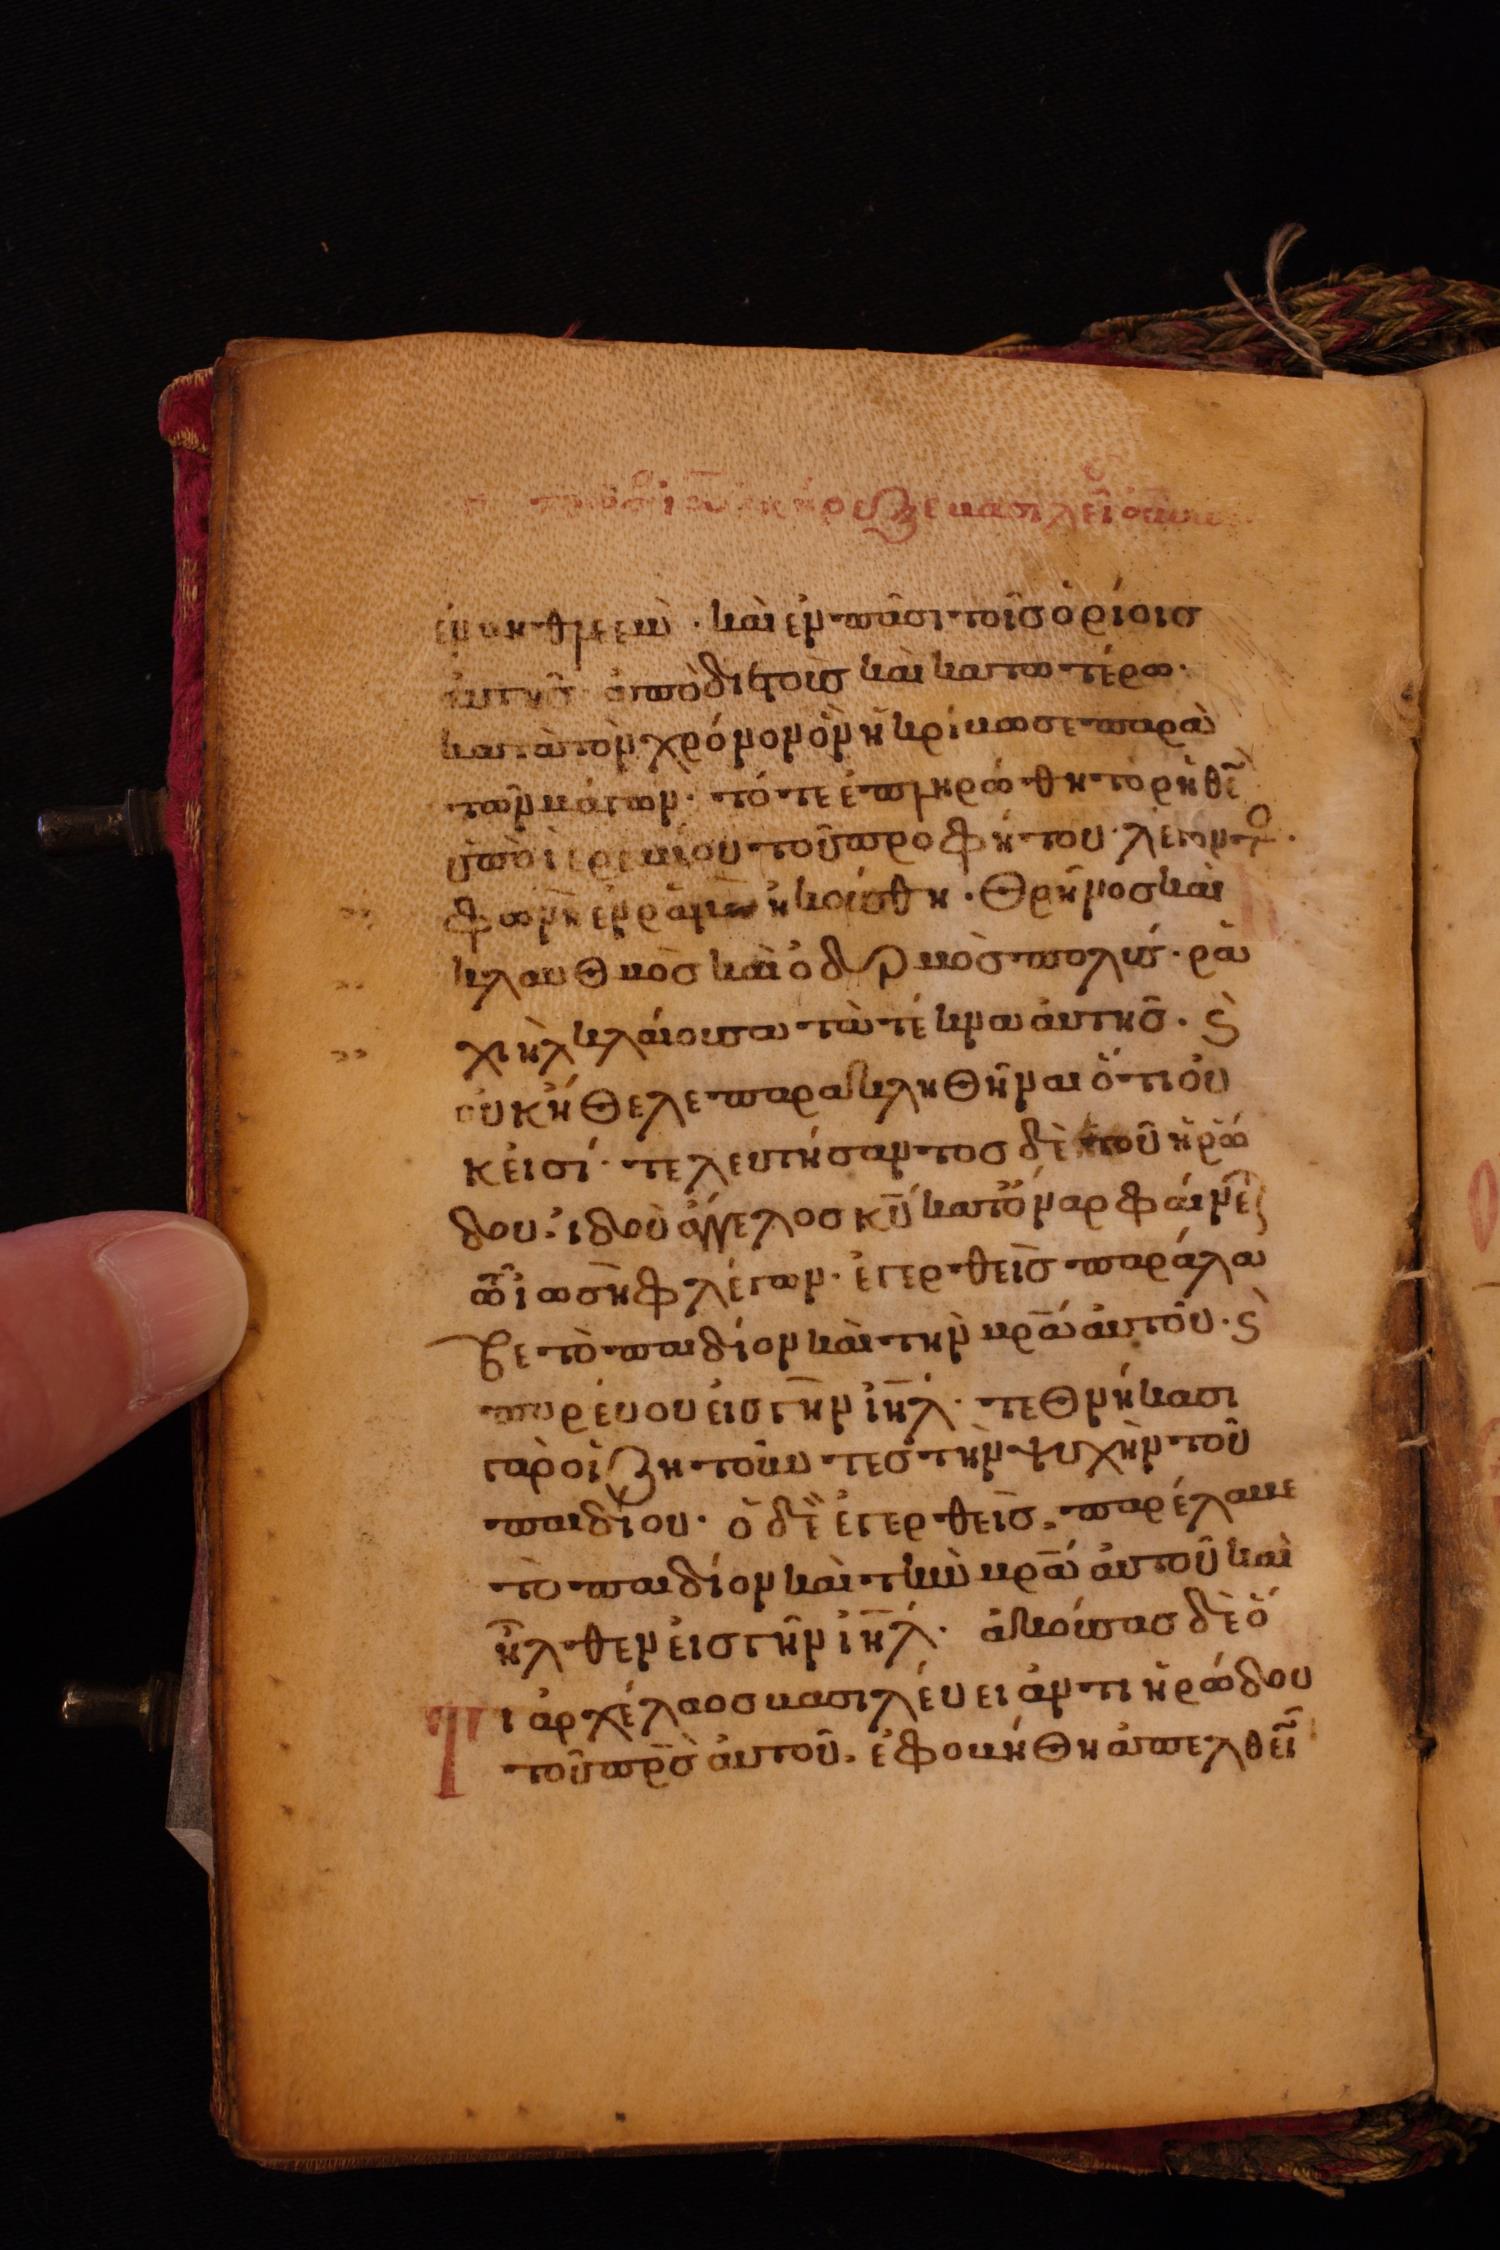 ἐν βηθλεὲμ · καὶ ἐν πᾶσι τοῖς ὁρίοις
αὐτῆς ἀπὸ διετοῦς καὶ κατωτέρω ·
κατὰ τὸν χρόνον ὃν ἠκρίβωσε παρὰ
τῶν μάγων · τότε ἐπληρώθη τὸ ρηθὲ̅
ὑπὸ ἱερεμίου τοῦ προφήτου λέγοντο ·
φωνὴ ἐν ραμὰ ἠκούσθη · θρῆνος καὶ
κλαυθμὸς καὶ ὀδυρμὸς πολύς · ρα
χιὴλ κλαίουσα τὰ τέκνα αὐτῆς · ϛ̀
οὐκ ἤθελε παρακληθῆναι ὅτι οὐ
κ εἰσί · τελευτήσαντος δὲ τοῦ ἡρώ
δου · ἰδοὺ ἄγγελος κ̅υ̅ κατ' ὄναρ φαίνε
τῶ ἰωσὴφ λέγων · ἐγερθεὶς παράλα
βε τὸ παιδίον καὶ τὴν μ̅ρ̅α̅ αὐτοῦ · ϛ̀
πορεύου εἰς γῆν ἰ̅η̅λ̅ · τεθνήκασι
γὰρ οἱ ζητοῦντες τὴν ψυχὴν τοῦ
παιδίου · ὁ δὲ ἐγερθεὶς, παρέλαβε
τὸ παιδίον καὶ τὴν μ̅ρ̅α̅ αὐτοῦ καὶ
ἦλθεν εἰς γῆν ἰ̅η̅λ̅ · ἀκούσας δὲ ὅ
τι ἀρχέλαος βασιλεύει ἀντὶ ἡρώδου
τοῦ π̅ρ̅ς̅ αὐτοῦ, ἐφοβήθη ἀπελθεῖ̅